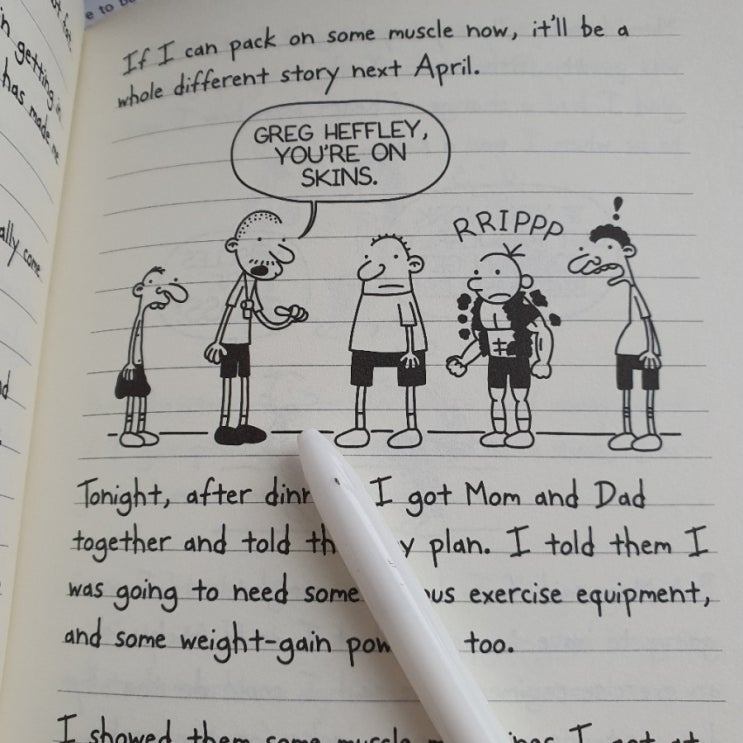 e to be
If I can pack on some muscle now, it'll be a
whole different story next April.
GREG HEFFLEY,
YOU'RE ON
SKINS.
RRIPPP
!
Tonight, after I got Mom and Dad
together and told plan. I told them I
was going to need some exercise equipment,
and some weight-gain too.
I showed them some muscle I got at
getting in
has made me
ally come